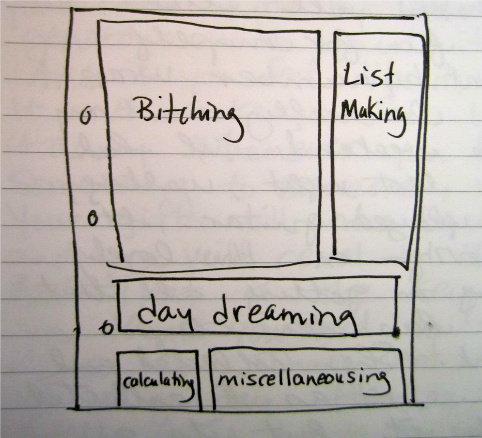 Bitching
List
Making
day dreaming
calculating
miscellaneousing